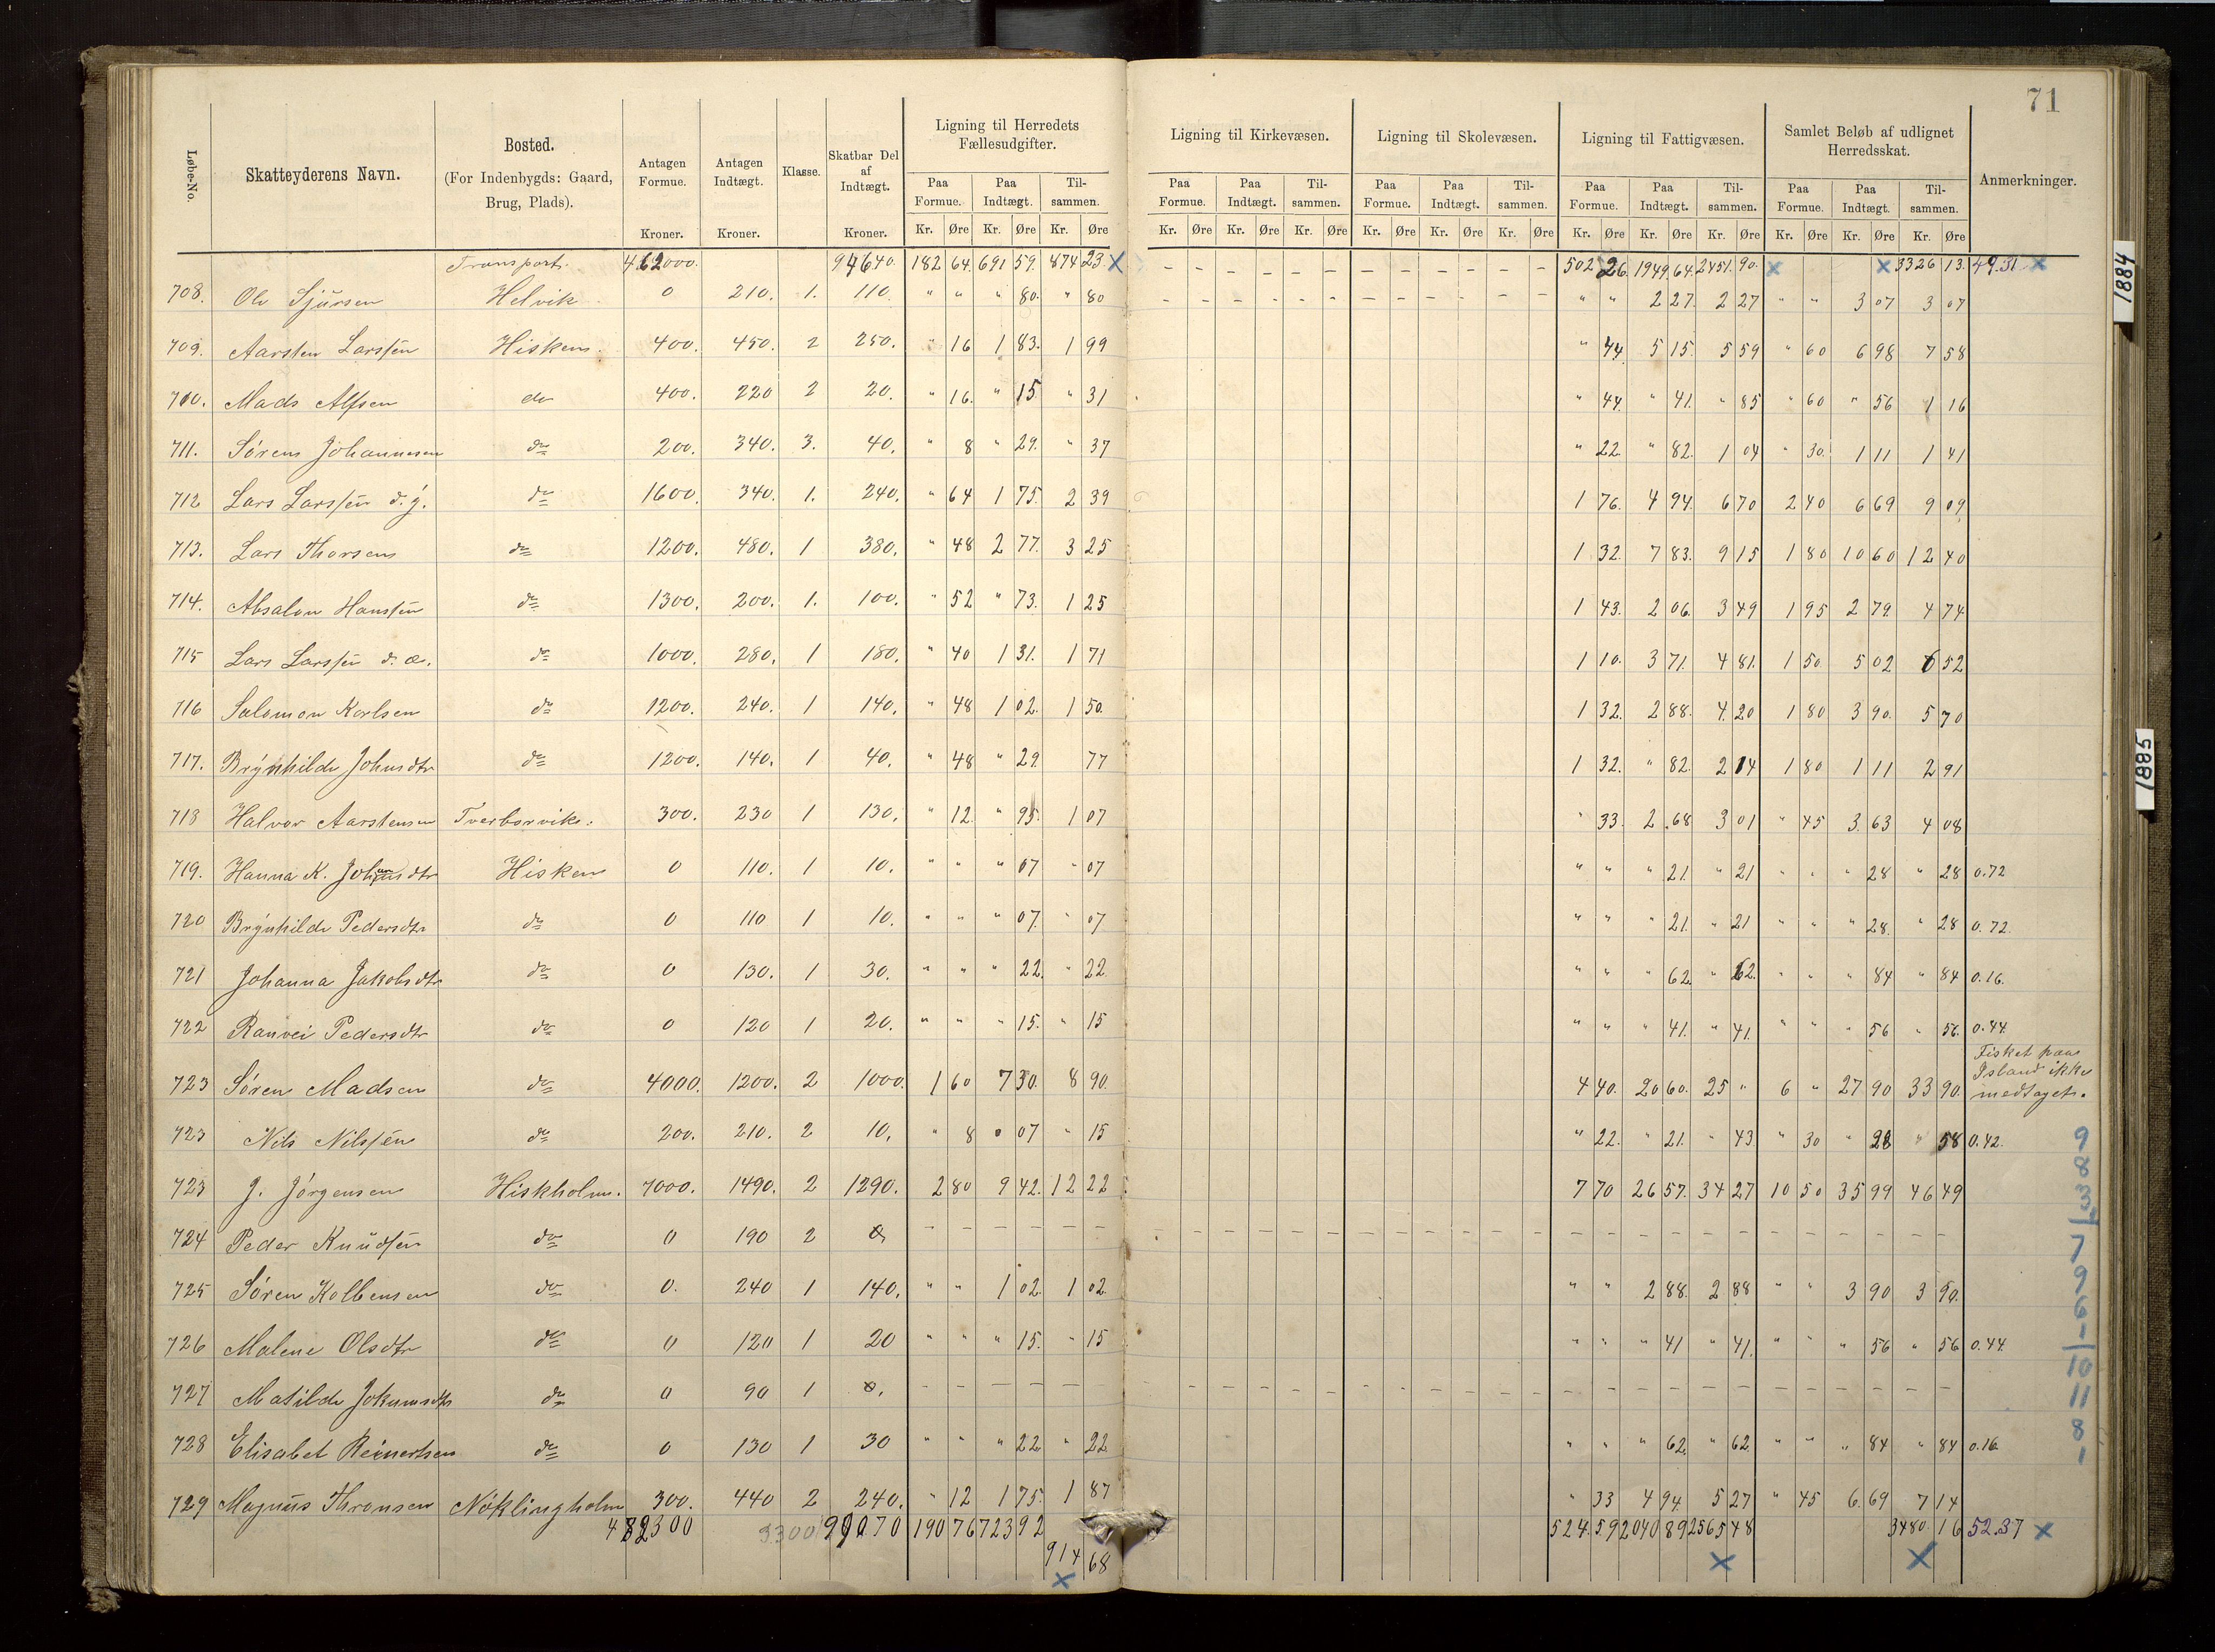 71
1884
1885
Løbe-No. Skatteyderens Navn. Bosted. (For Indenbygds: Gaard, Brug, Plads). Antagen Formue. Kroner. Antagen Indtægt. Kroner. Klasse. Skatbar Del af Indtægt. Kroner. Ligning til Herredets Fællesudgifter. Ligning til Kirkevæsen. Ligning til Skolevæsen. Ligning til Fattigvæsen. Samlet Beløb af udlignet Herredsskat. Anmerkninger.
Paa Formue. Paa Indtægt. Til-sammen. Paa Formue. Paa Indtægt. Til-sammen. Paa Formue. Paa Indtægt. Til-sammen. Paa Formue. Paa Indtægt. Til-sammen. Paa Formue. Paa Indtægt. Til-sammen.
Kr. Øre Kr. Øre Kr. Øre Kr. Øre Kr. Øre Kr. Øre Kr. Øre Kr. Øre Kr. Øre Kr. Øre Kr. Øre Kr. Øre Kr. Øre Kr. Øre Kr. Øre
Transport. 462000. 94640. 182 64. 691 59. 874 23. x – – – – – – – – – – – – 502 26. 1949 64. 2451. 90. x x 3326 13. 49.31 x
708. Ole Sjursen Helvik 0 210. 1. 110. " " " 80. " 80 – – – – – – – – – – – – " " 2 27. 2 27 " " 3 07 3 07
709. Aarsten Larssen Hisken. 400. 450. 2 250. " 16 1 83. 1 99 " 44. 5 15. 5 59 " 60 6 98 7 58
710. Mads Alfsen do 400. 220 2 20. " 16. " 15. " 31 " 44. " 41. " 85 " 60 " 56 1 16
711. Sørens Johannesen do 200. 340. 3. 40. " 8 " 29. " 37 " 22. " 82. 1 04 " 30. 1 11 1 41
712 Lars Larssen d.y. do 1600. 340. 1. 240. " 64 1 75. 2 39 1 76. 4 94. 6 70 2 40 6 69 9 09
713. Lars Thorsen do 1200. 480. 1 380. " 48 2 77. 3 25 1 32. 7 83. 9 15 1 80 10 60 12 40
714. Absalon Hanssen do 1300. 200. 1. 100. " 52 " 73. 1 25 1 43. 2 06. 3 49 1 95 2 79. 4 74
715 Lars Larssen d.æ. do 1000. 280. 1 180. " 40 1 31. 1 71 1 10. 3 71. 4 81. 1 50. 5 02 6 52
716 Salomon Karlsen do 1200. 240. 1 140. " 48 1 02. 1 50. 1 32. 2 88. 4. 20 1 80 3 90. 5 70
717. Brynhilde Johnsdtr do 1200. 140. 1 40. " 48 " 29. 77 1 32. " 82. 2 14 1 80 1 11 2 91
718 Halvor Aarstensen Tverborvik. 300. 230 1 130. " 12. " 95. 1 07 " 33. 2 68 3 01 " 45 3. 63 4 08
719. Hanna K. dtr Hisken 0 110. 1 10. " " " 07 " 07 " " " 21. " 21 " " " 28 " 28 0.72
720 Brynhilde Pedersdtr do 0 110 1 10. " " " 07. " 07 " " " 21. " 21 " " " 28. " 28 0.72.
721 Johanna Jakobsdtr do 0 130. 1 30. " " " 22. " 22. " " " 62. " 62. " " " 84 " 84 0.16.
722 Ranvei Pedersdtr do 0 120 1 20. " " " 15. " 15 " " " 41. " 41. " " " 56 " 56. 0.44.
723 Søren Madsen do 4000. 1200. 2 1000. 1 60 7 30. 8 90. 4 40. 20 60. 25 " 6 " 27 90 33 90. Fisket paa Island ikke medtaget.
723 Nils Nilssen do 200. 210. 2 10. " 8 " 07 " 15 " 22. " 21. " 43 " 30 " 28 " 58 0.42.
723 J. Jørgensen Hiskholm. 7000. 1490. 2 1290. 2 80 9 42. 12 22 7 70 26 57. 34 27 10 50 35 99 46 49
724 Peder Knudsen do 0 190 2 0 – – – – – – – – – – – – – – – – – – – – – – – –
725 Søren Kolbensen do 0. 240 1 140. " " 1 02. 1 02. " " 2 88. 2 88 " " 3 90 3 90.
726 Malene Olsdtr do 0 120 1 20 " " " 15. " 15 " " " 41 " 41. " " " 56 " 56 0.44
727 Matilde Jokumsdtr do 0 90 1 0. – – – – – – – – – – – – – – – – – – – – – – – –
728 Elisabet Reinertsen do 0 130 1 30 " " " 22. " 22. " " " 62. " 62. " " " 84 " 84 0.16.
729 Magnus Thronsen Nøklingholm 300. 440 2 240. " 12 1 75. 1 87 " 33 4 94. 5 27 " 45 6. 69 7 14
482300 3300 99070 190 76 723 92 524. 59 2040 89 2565 48 3480. 16 52.37 x
914 68
x x x
9
8
3
7
9
6
1
10
11
8
1